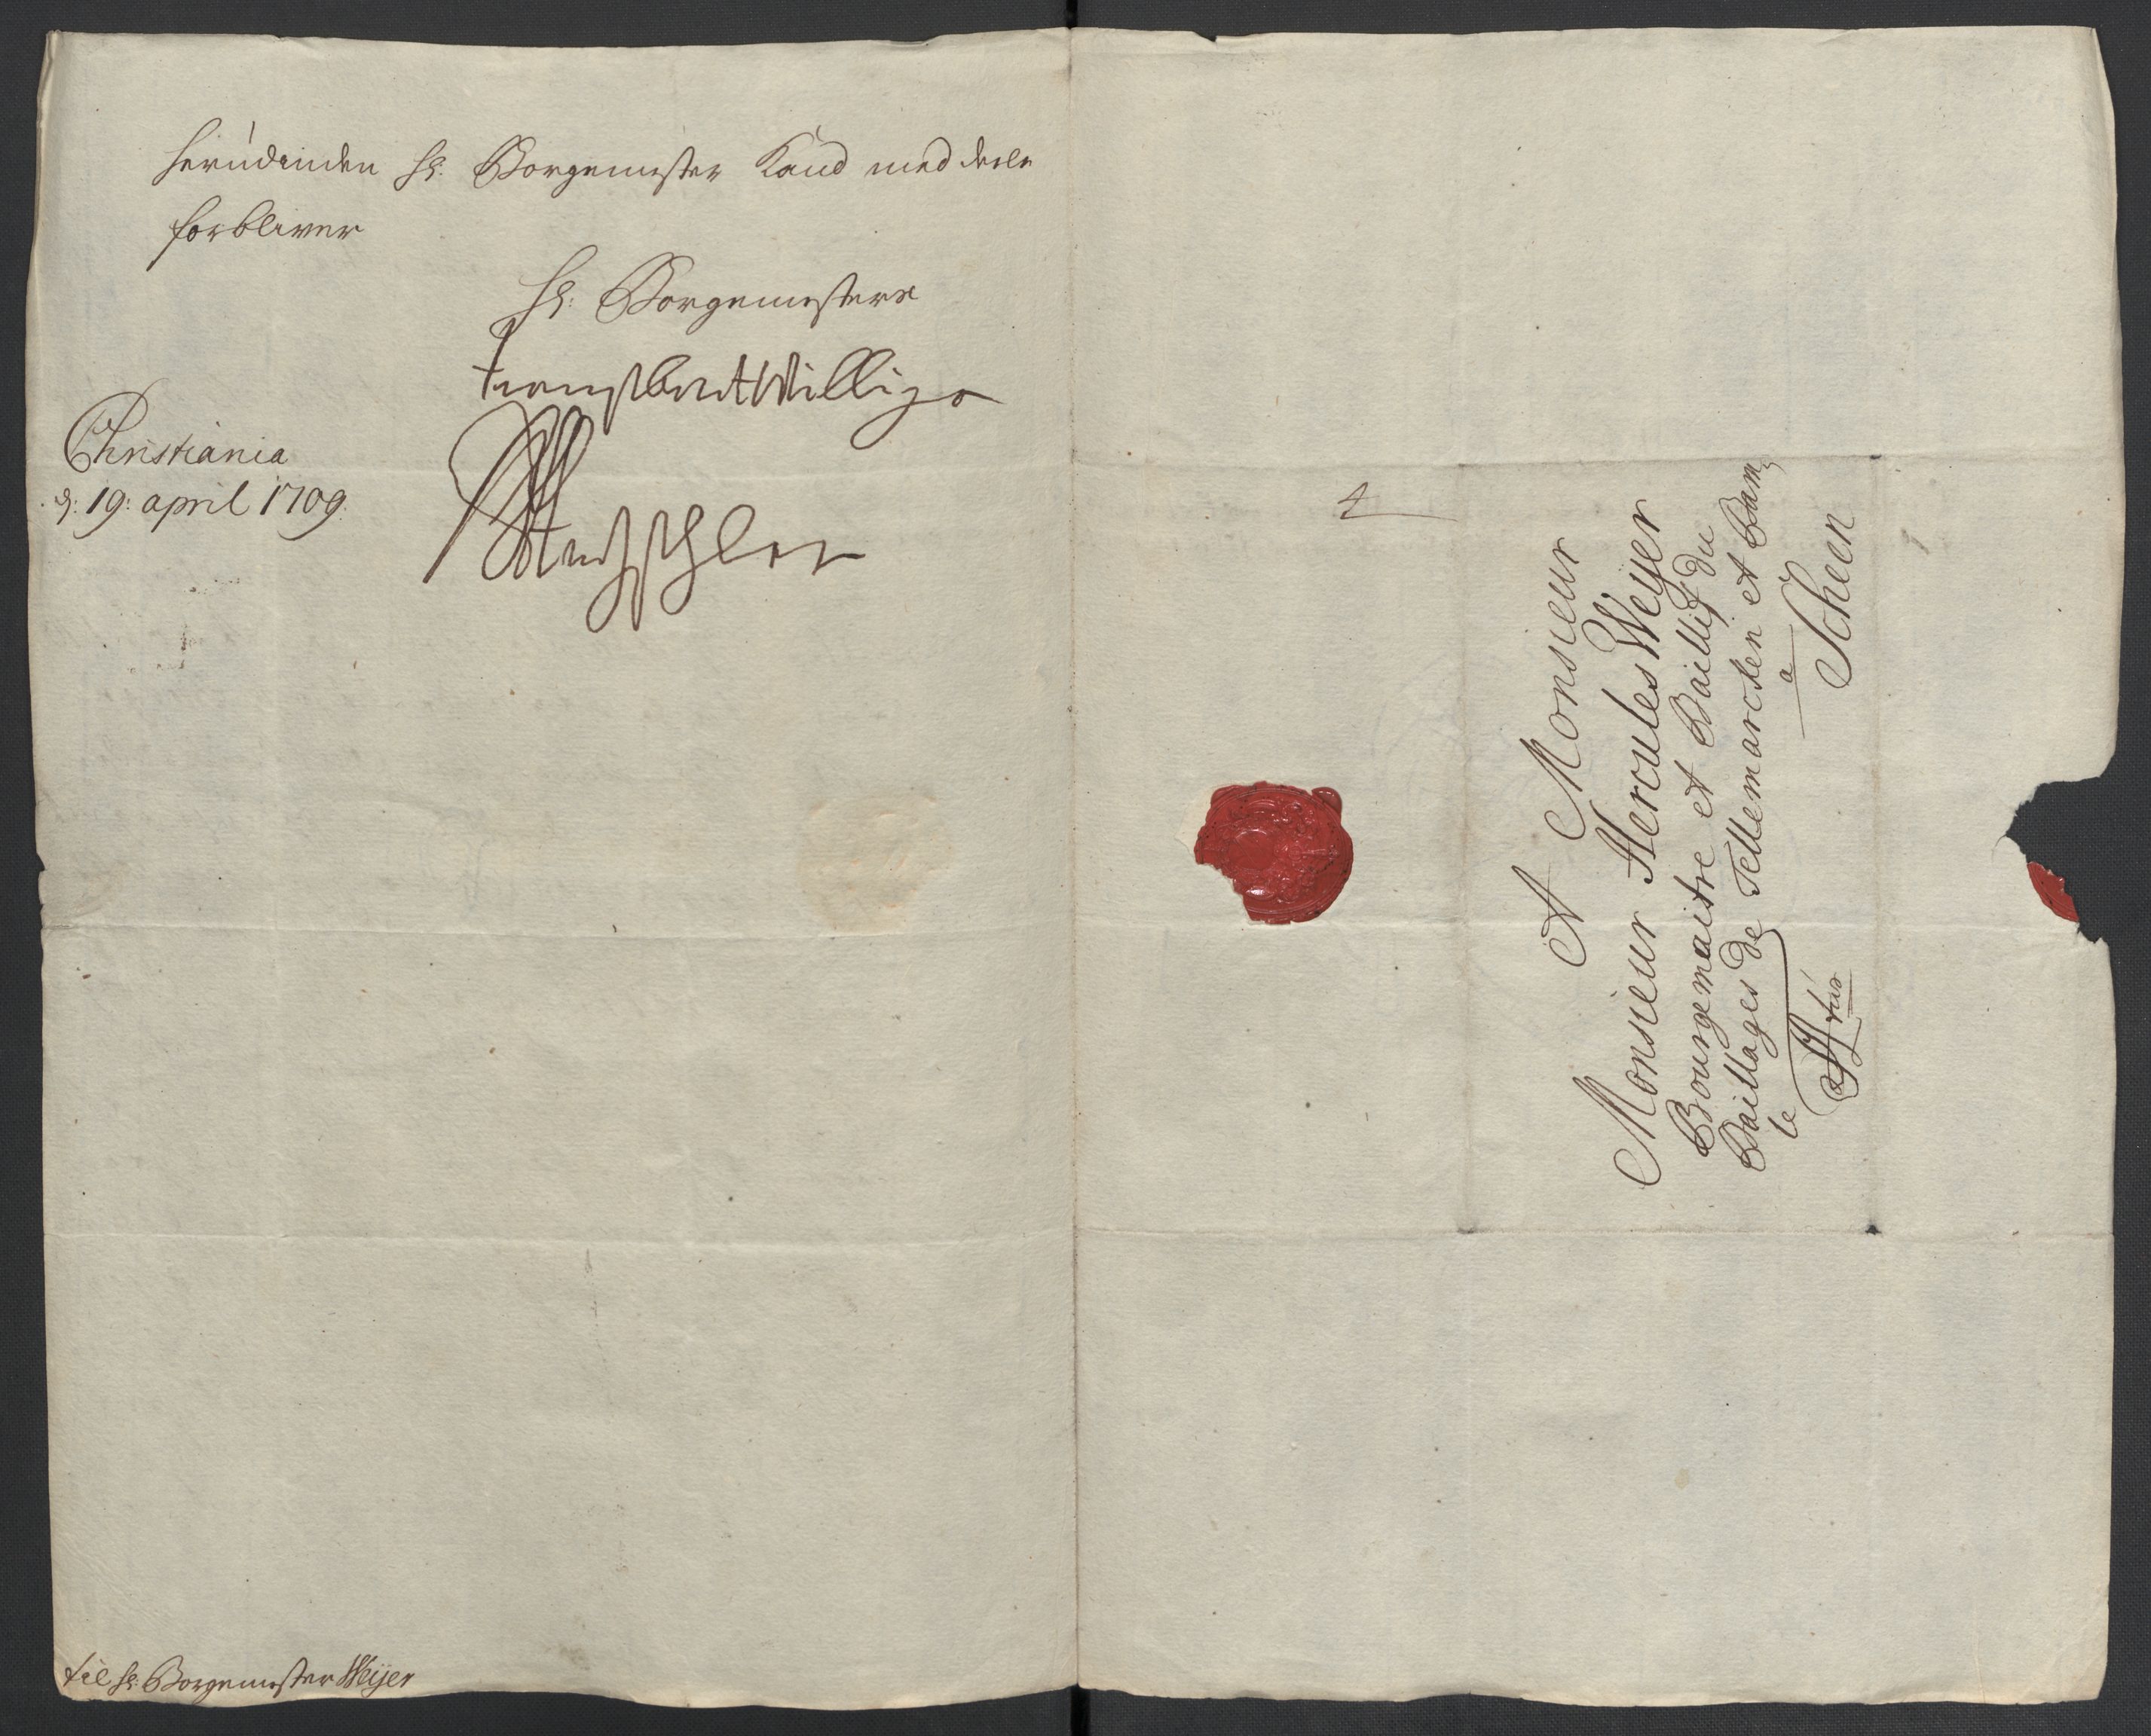 herudinden Hr: Borgemester Kand meddeele
forbliver
Hr: Borgemesters
tienistberedtWillige
Christiania
d: 19: april 1709.
til Hr: Borgemester Weyer
4
A Monsieur
Monsieur Hercules Weyer
Bourgemaitre et Baillif du
Baillages de Tellemarcken et Bam
le
a
Scheen